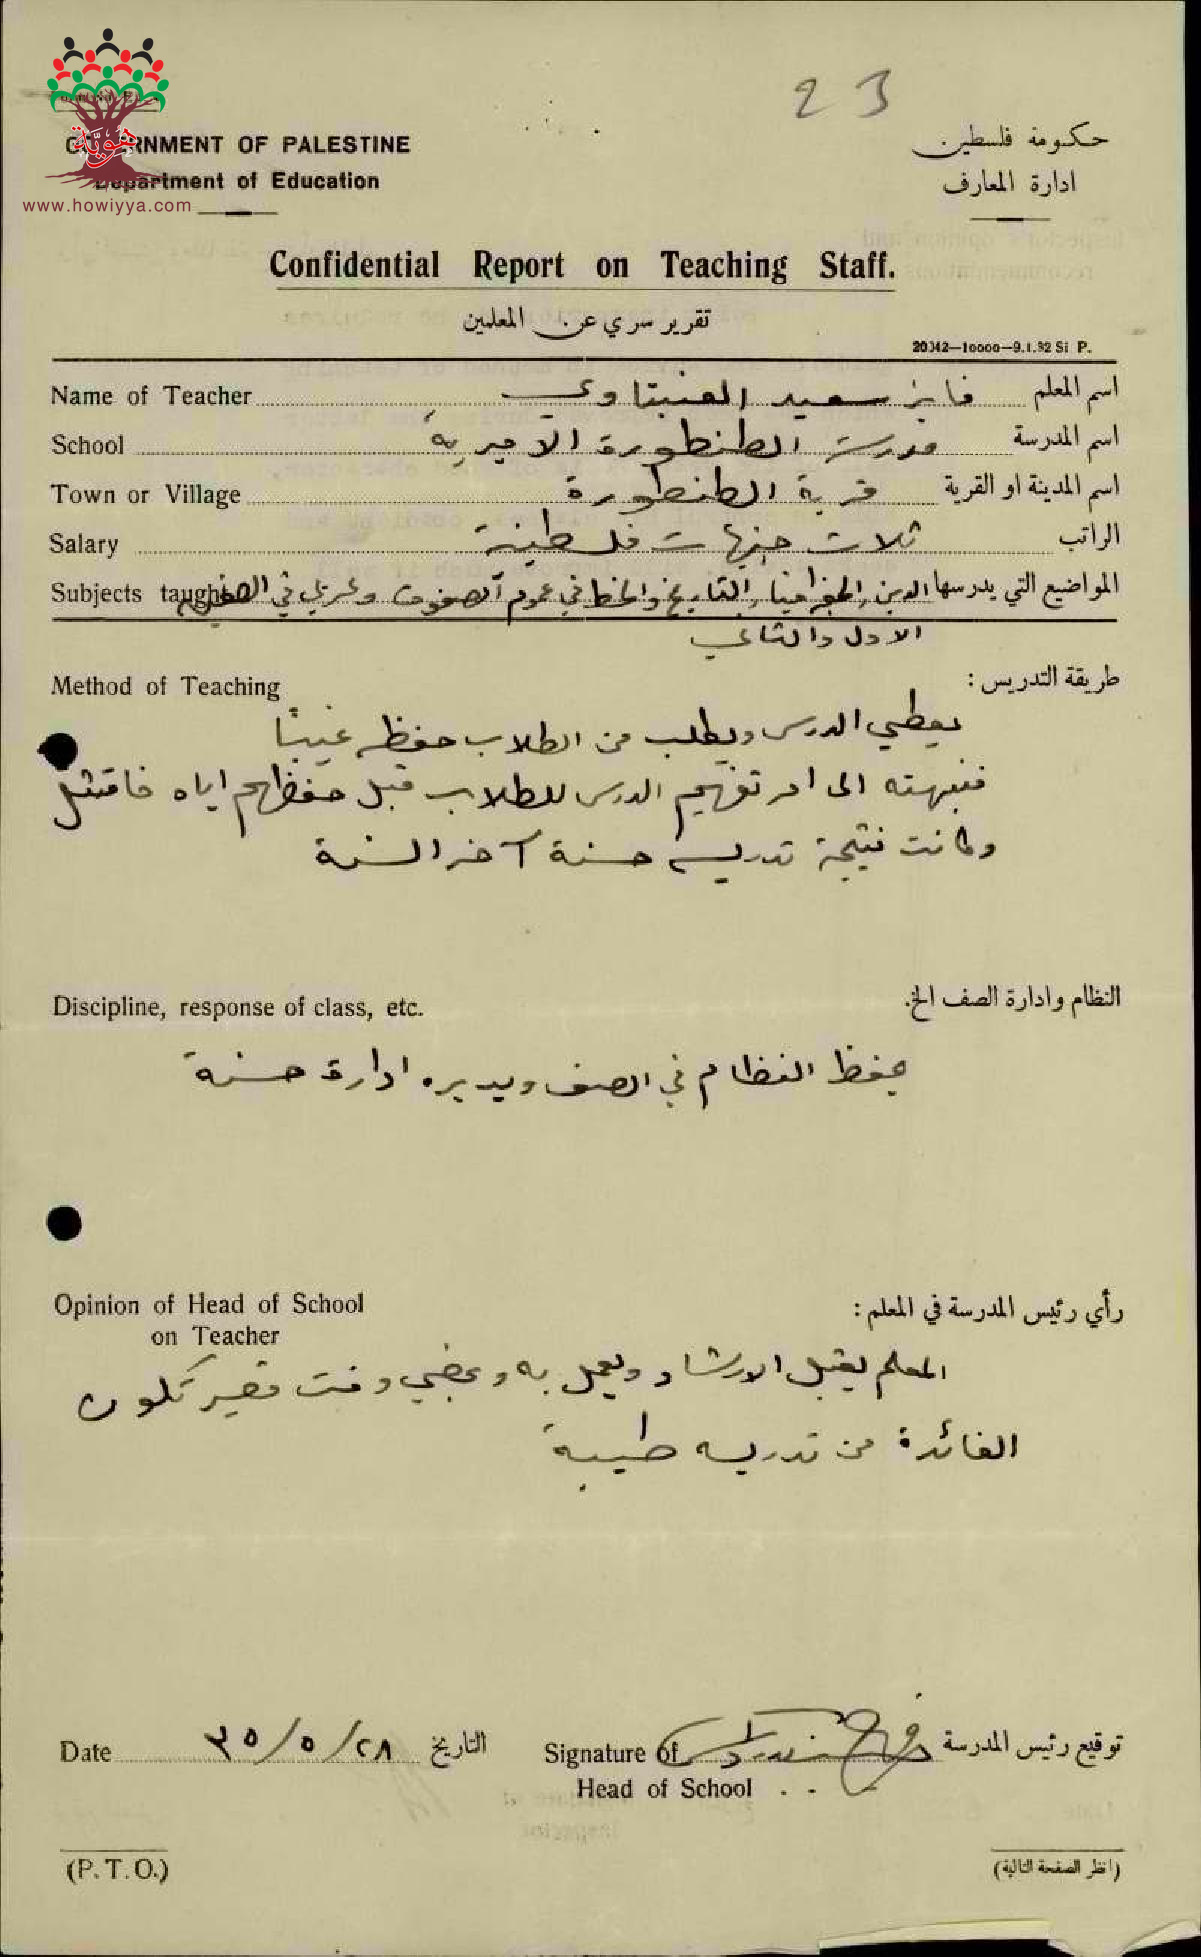 23
GOVERNMENT OF PALESTINE
Department of Education
هوية
www.howiyya.com
حكومة فلسطين
ادارة المعارف
Confidential Report on Teaching Staff.
تقرير سري عن المعلمين
20342—10000—9.1.32 Si P.
Name of Teacher فايز سعيد العنبتاوي اسم المعلم
School مدرسة الطنطورة الاميرية اسم المدرسة
Town or Village قرية الطنطورة اسم المدينة او القرية
Salary ثلاث جنيهات فلسطينية الراتب
Subjects taught المواضيع التي يدرسها الدين والجغرافيا والتاريخ والخط في عموم الصفوف وعربي في الصفين
الاول والثاني
Method of Teaching طريقة التدريس :
يعطي الدرس ويطلب من الطلاب حفظه غيبًا
فنبهته الى امر تفهيم الدرس للطلاب قبل حفظهم اياه فامتثل
وكانت نتيجة تدريسه حسنة آخر السنة
Discipline, response of class, etc. النظام وادارة الصف الخ.
يحفظ النظام في الصف ويديره ادارة حسنة
Opinion of Head of School رأي رئيس المدرسة في المعلم :
on Teacher
المعلم يقبل الارشاد ويعمل به وبمضي وقت قصير تكون
الفائدة من تدريسه طيبة
Date ٢٨/٥/٣٥ التاريخ Signature of توقيع رئيس المدرسة
Head of School
(P. T. O.) (انظر الصفحة التالية)